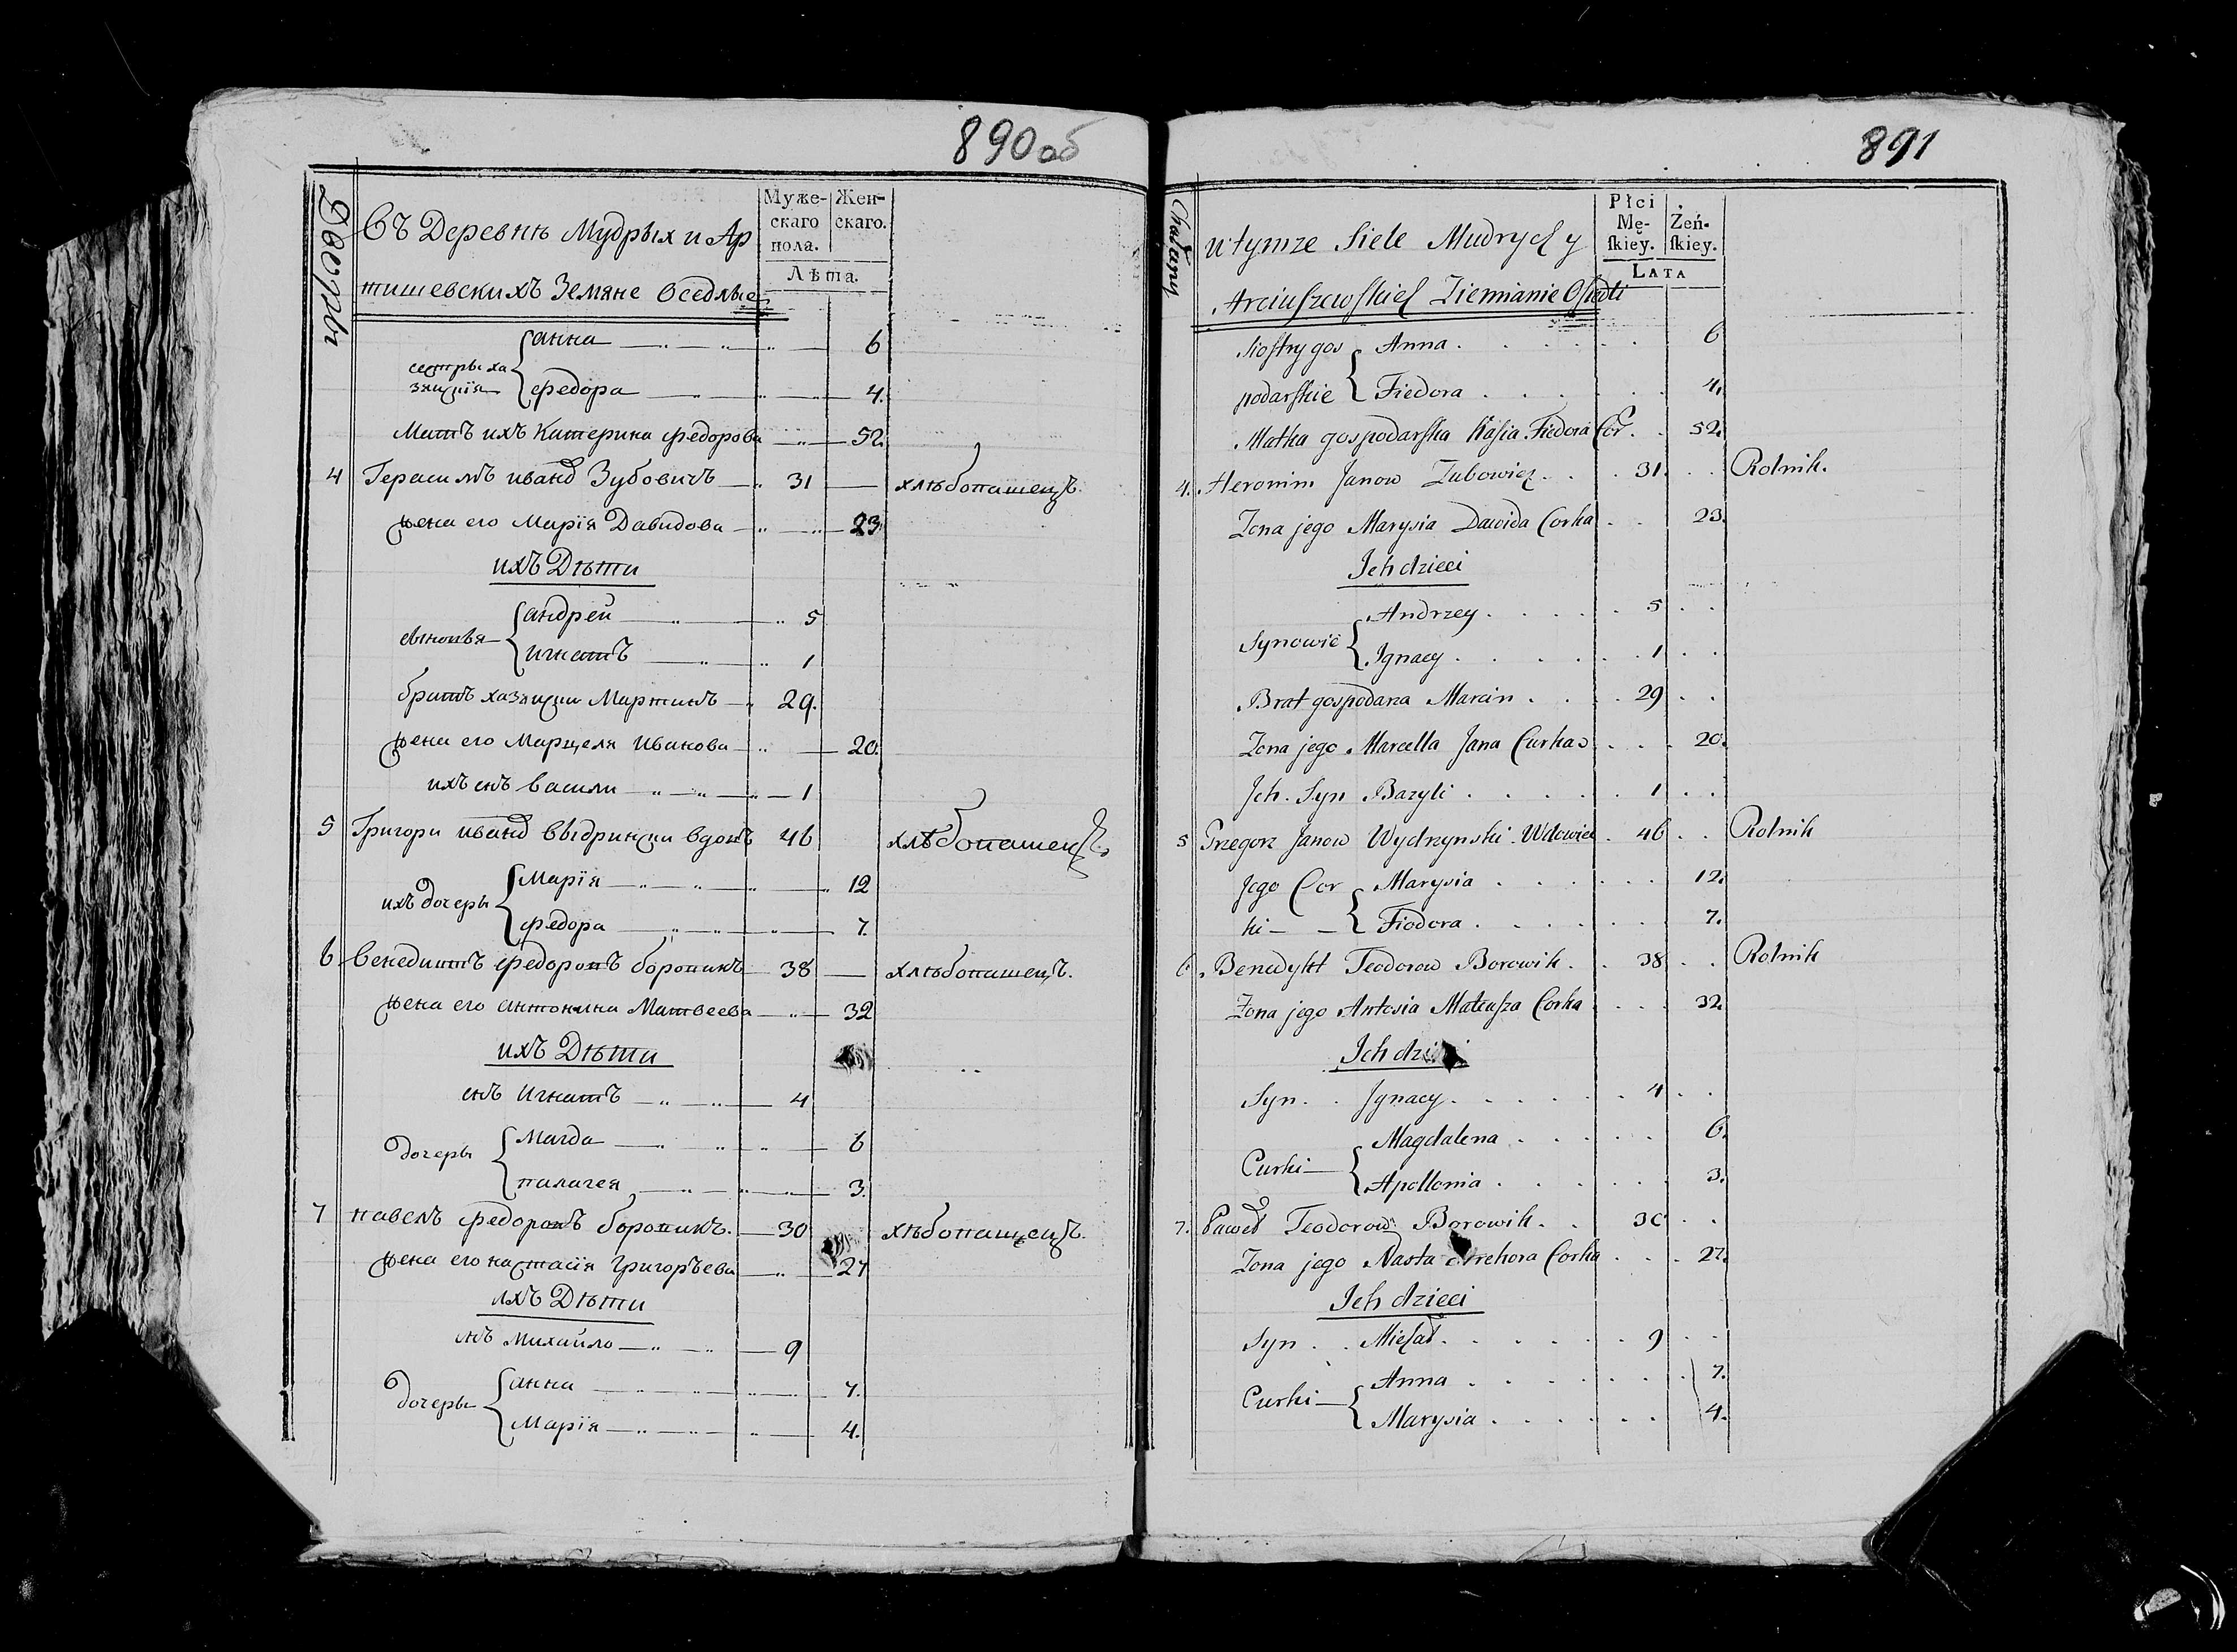 890 об
Дворы
Въ Деревнѣ Мудрых и Ар
тишевскихъ Земяне Оседлые
Муже-
скаго
пола.
Жен-
скаго.
Лѣта.
сестры ха
зяиския
анна 6
федора 4.
Мать ихъ Катерина федорова 52.
4 Герасимъ иванд Зубовичъ 31 хлѣбопашецъ.
жена его Марїя Давидова 23.
ихъ Дѣти
сыновья
андрей 5
игнатъ 1
братъ хазяиски Мартинъ 29.
жена его Марцеля Иванова 20.
ихъ снъ василий 1
5 Григори иванд выдрински вдовъ 46 хлѣбопашецъ.
ихъ дочеры
Марїя 12
федора 7.
6. Венедиктъ федоровъ боровикъ 38 хлѣбопашецъ.
жена его антонина Матвеева 32
ихъ Дѣти
снъ игнатъ 4
дочеры
Магда 6
палагея 3.
7 павелъ федоровъ боровикъ. 30 хлѣбопашецъ.
жена его настасїя григорьева 27
ихъ Дѣти
снъ михайло 9
дочеры
анна 7.
Марїя 4.
891
Chałupy
w tymze Siele Mudrych y
Arciuszewskich Ziemianie Osiedli
Płci
Mę-
skiey.
Żeń-
skiey.
LATA
Siostry gos
podarskie
Anna 6
Fiedora 4.
Matka gospodarska Kasia Fiedora Cor. 52.
4. Heronim Janow Zubowicz 31. Rolnik.
Zona jego Marysia Dawida Corka 23.
Ich dzieci
Synowie
Andrzey 5
Ignacy 1
Brat gospodarza Marcin 29
Zona jego Marcella Jana Curka 20.
Ich Syn Bazyli 1
5 Grzegorz Janow Wydrzynski Wdowiec 46 Rolnik
Jego Cor
ki
Marysia 12.
Fiodora 7.
6. Benedykt Teodorow Borowik 38 Rolnik
Zona jego Antosia Mateusza Corka 32
Ich dzieci
Syn Ignacy 4
Curki
Magdalena 6.
Apollonia 3.
7. Paweł Teodorow Borowik 30
Zona jego Nasta Hrehora Corka 27.
Ich dzieci
Syn Michał 9
Curki
Anna 7.
Marysia 4.